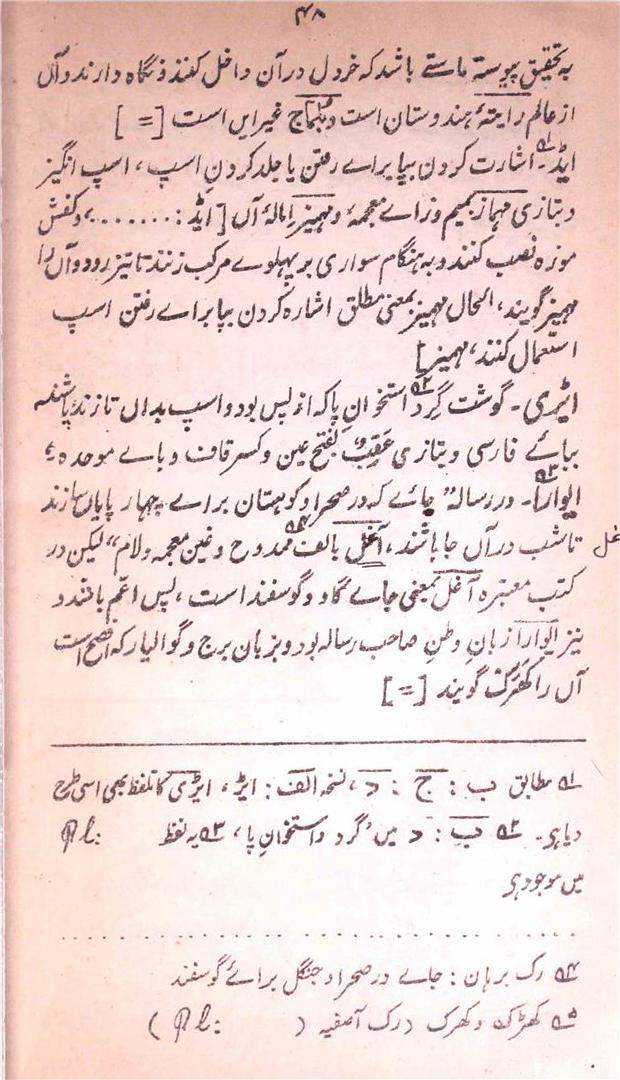 ۴۸
به تحقیق پیوستہ ماستے باشد کہ خردل در آن داخل کنند و نگاه دارند و آن
از عالم رایتۂ ہندوستان است و بلماج غیر ایں است [=]
ایڈ۵۱۔ اشارت کردن بپا براے رفتن یا جلد کردنِ اسپ، اسپ انگیز
و بتازی مہماز بمیم و زاے معجمہ و مہمیز امالۂ آں [ایڈ: ....... و کفش
موزہ نصب کنند و بہ ہنگام سواری بر پہلوے مرکب زنند تا تیز رود و آں را
مہمیز گویند، الحال مہمیز بمعنی مطلق اشارہ کردن بپا براے رفتن اسپ
استعمال کنند، مہمیز]
ایڑی۔ گوشت گِرد۵۲ استخوانِ پا کہ از پس بود و اسپ بداں تازند پاشنہ
ببائے فارسی و بتازی عَقِب بفتح عین و کسر قاف و باے موحدہ
الوارا۵۳۔ در رسالہ ”جائے کہ در صحرا و کوہستان براے چہار پایاں سازند
تا شب در آں جا باشند، آغل بالف ممدوح و غین معجمہ و لام“ لیکن در
غل
کتب معتبرہ آغل بمعنی جاے گاو و گوسفند است، پس اعم باشد و
نیز الوارا زبانِ وطنِ صاحب رسالہ بود و بزبان برج و گوالیار کہ افصح است
آں را کھرک گویند [=]
۵۱ مطابق ب: ج: د، نسخہ الف: ایڑ، ایڑی کا تلفظ بھی اسی طرح
دیا ہی۔ ۵۲ ب: د میں ’گرد و استخوانِ پا‘، ۵۳ یہ لفظ Pl:
میں موجود ہی
۵۴ رک برہان: جاے در صحرا و جنگل براے گوسفند
۵۵ کھڑک و کھرک (رک آصفیہ) (Pl:)